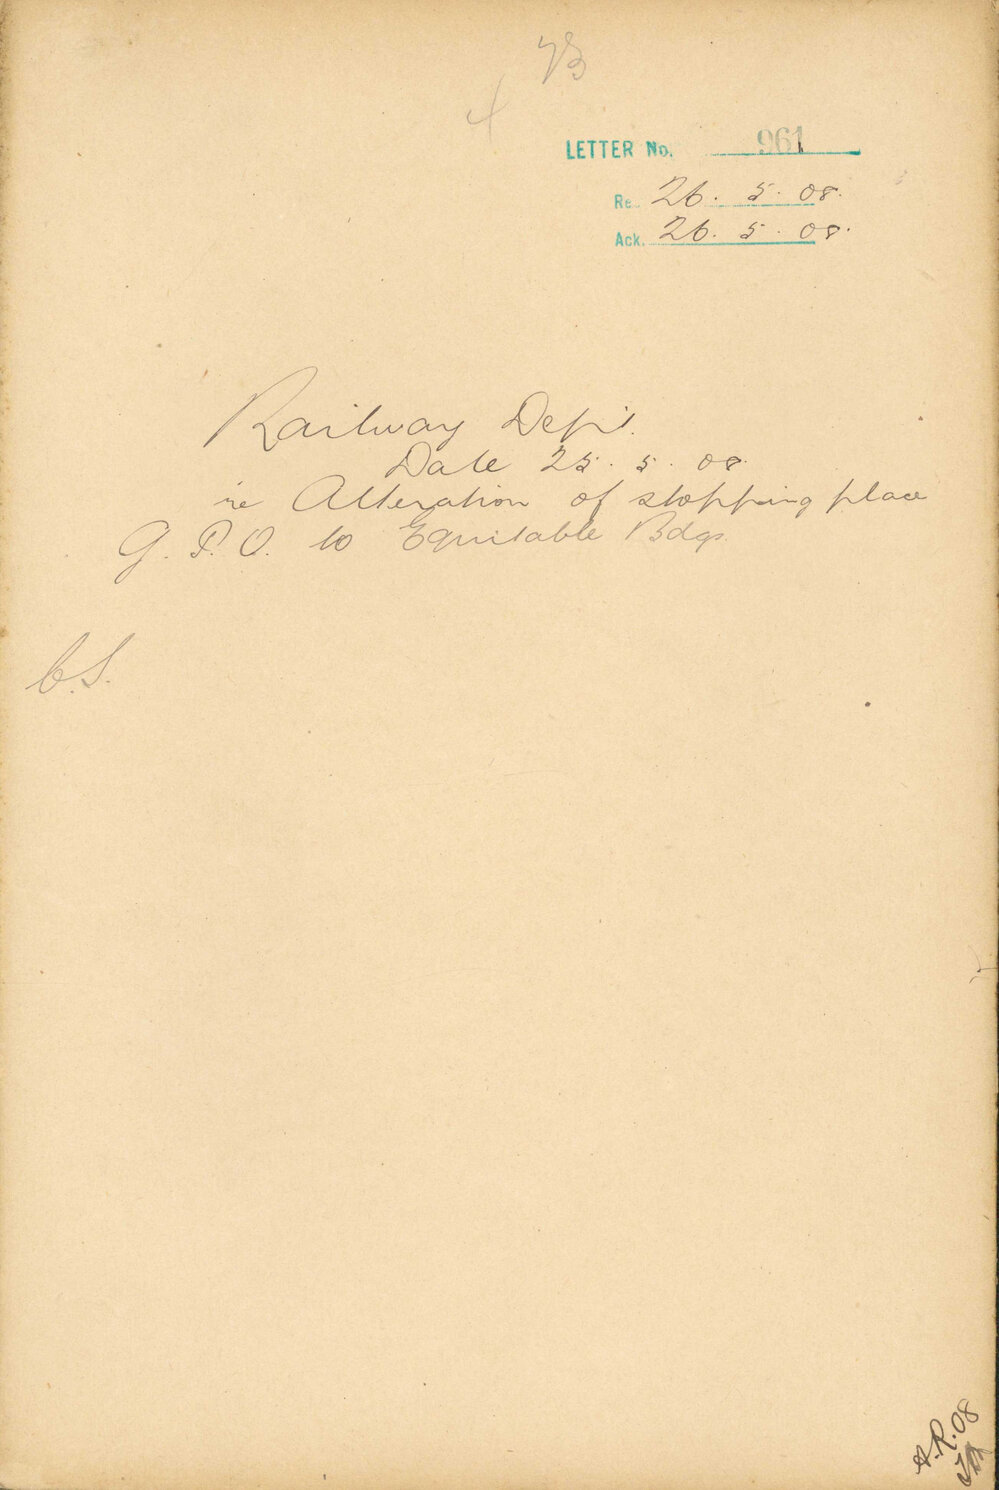 73
LETTER No. 961
Re. 26. 5. 08.
Ack. 26. 5. 08.
Railway Dept.
Date 25. 5. 08.
re Alteration of stopping place
G. P. O. to Equitable Bdgs.
C.S.
A.R. 08